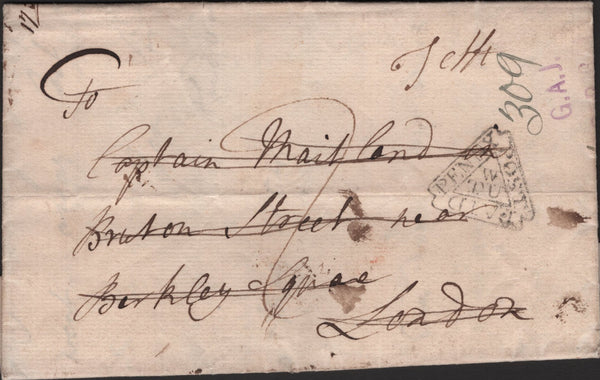 To
Captain Maitland in
Bruton Street near
Berkley Square
London
309
G.A.J
PENNY POST PAID